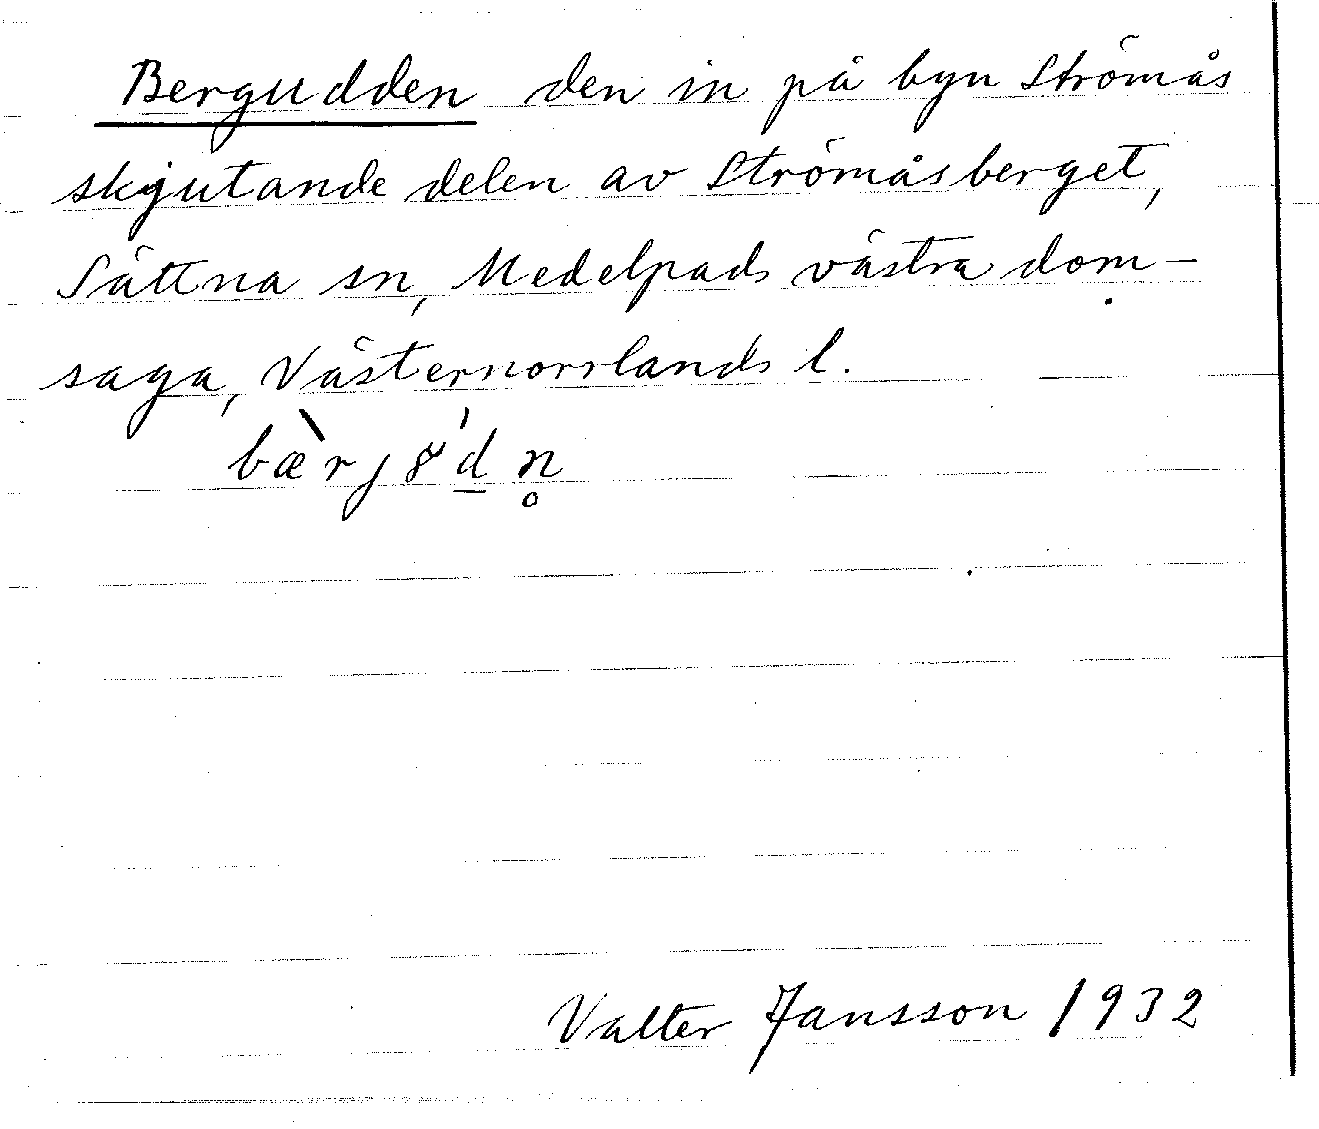 Bergudden den in på byn Strömås
skjutande delen av Strömåsberget,
Sättna sn, Medelpads västra dom-
saga, Västernorrlands l.
bæ̀rjȣ́d̲n̥
Valter Jansson 1932